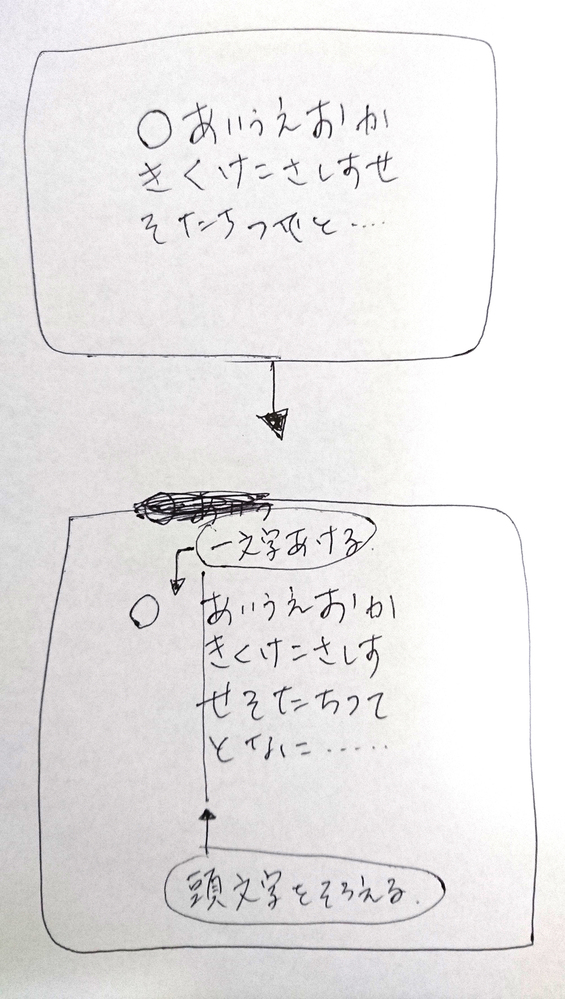 ○あいうえおか
きくけこさしすせ
そたちつてと....
一文字あける.
○ あいうえおか
きくけこさしす
せそたちつて
となに......
頭文字をそろえる.